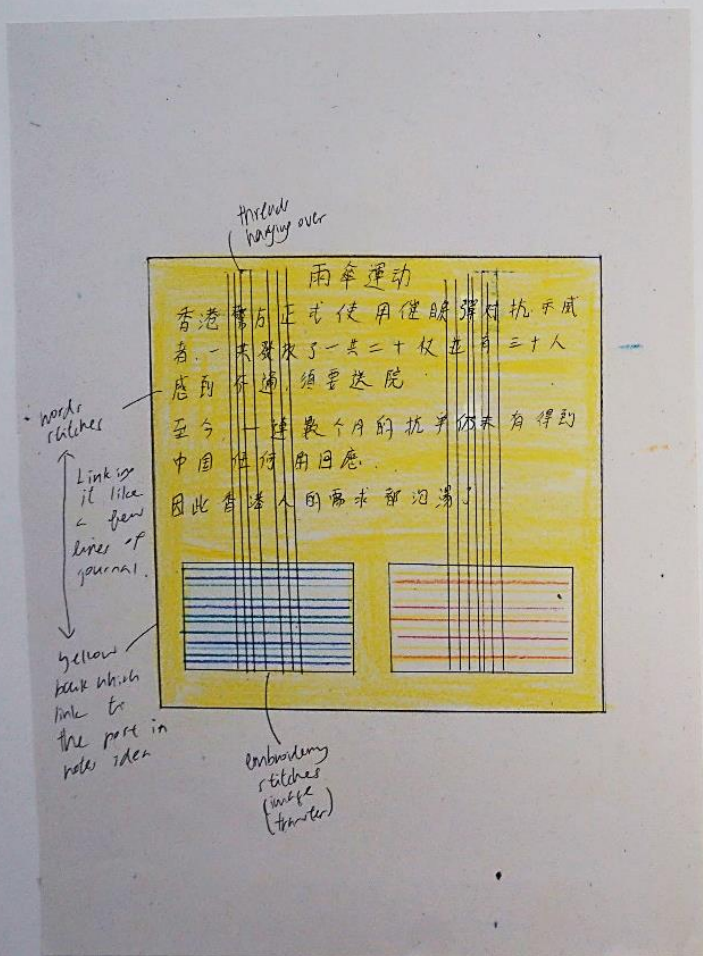 threads
hanging over
雨伞運动
香港警方正式使用催眼彈对抗示威
者.一共發放了一共二十枚並有三十人
感到不適,須要送院.
至今,一連數个月的抗争仍未有得到
中国任何用回應.
因此香港人的需求都泡湯了
words
stitches
Linking
it like
a few
lines of
journal.
yellow
back which
link to
the post in
notes idea
embroidery
stitches
(image
transfer)